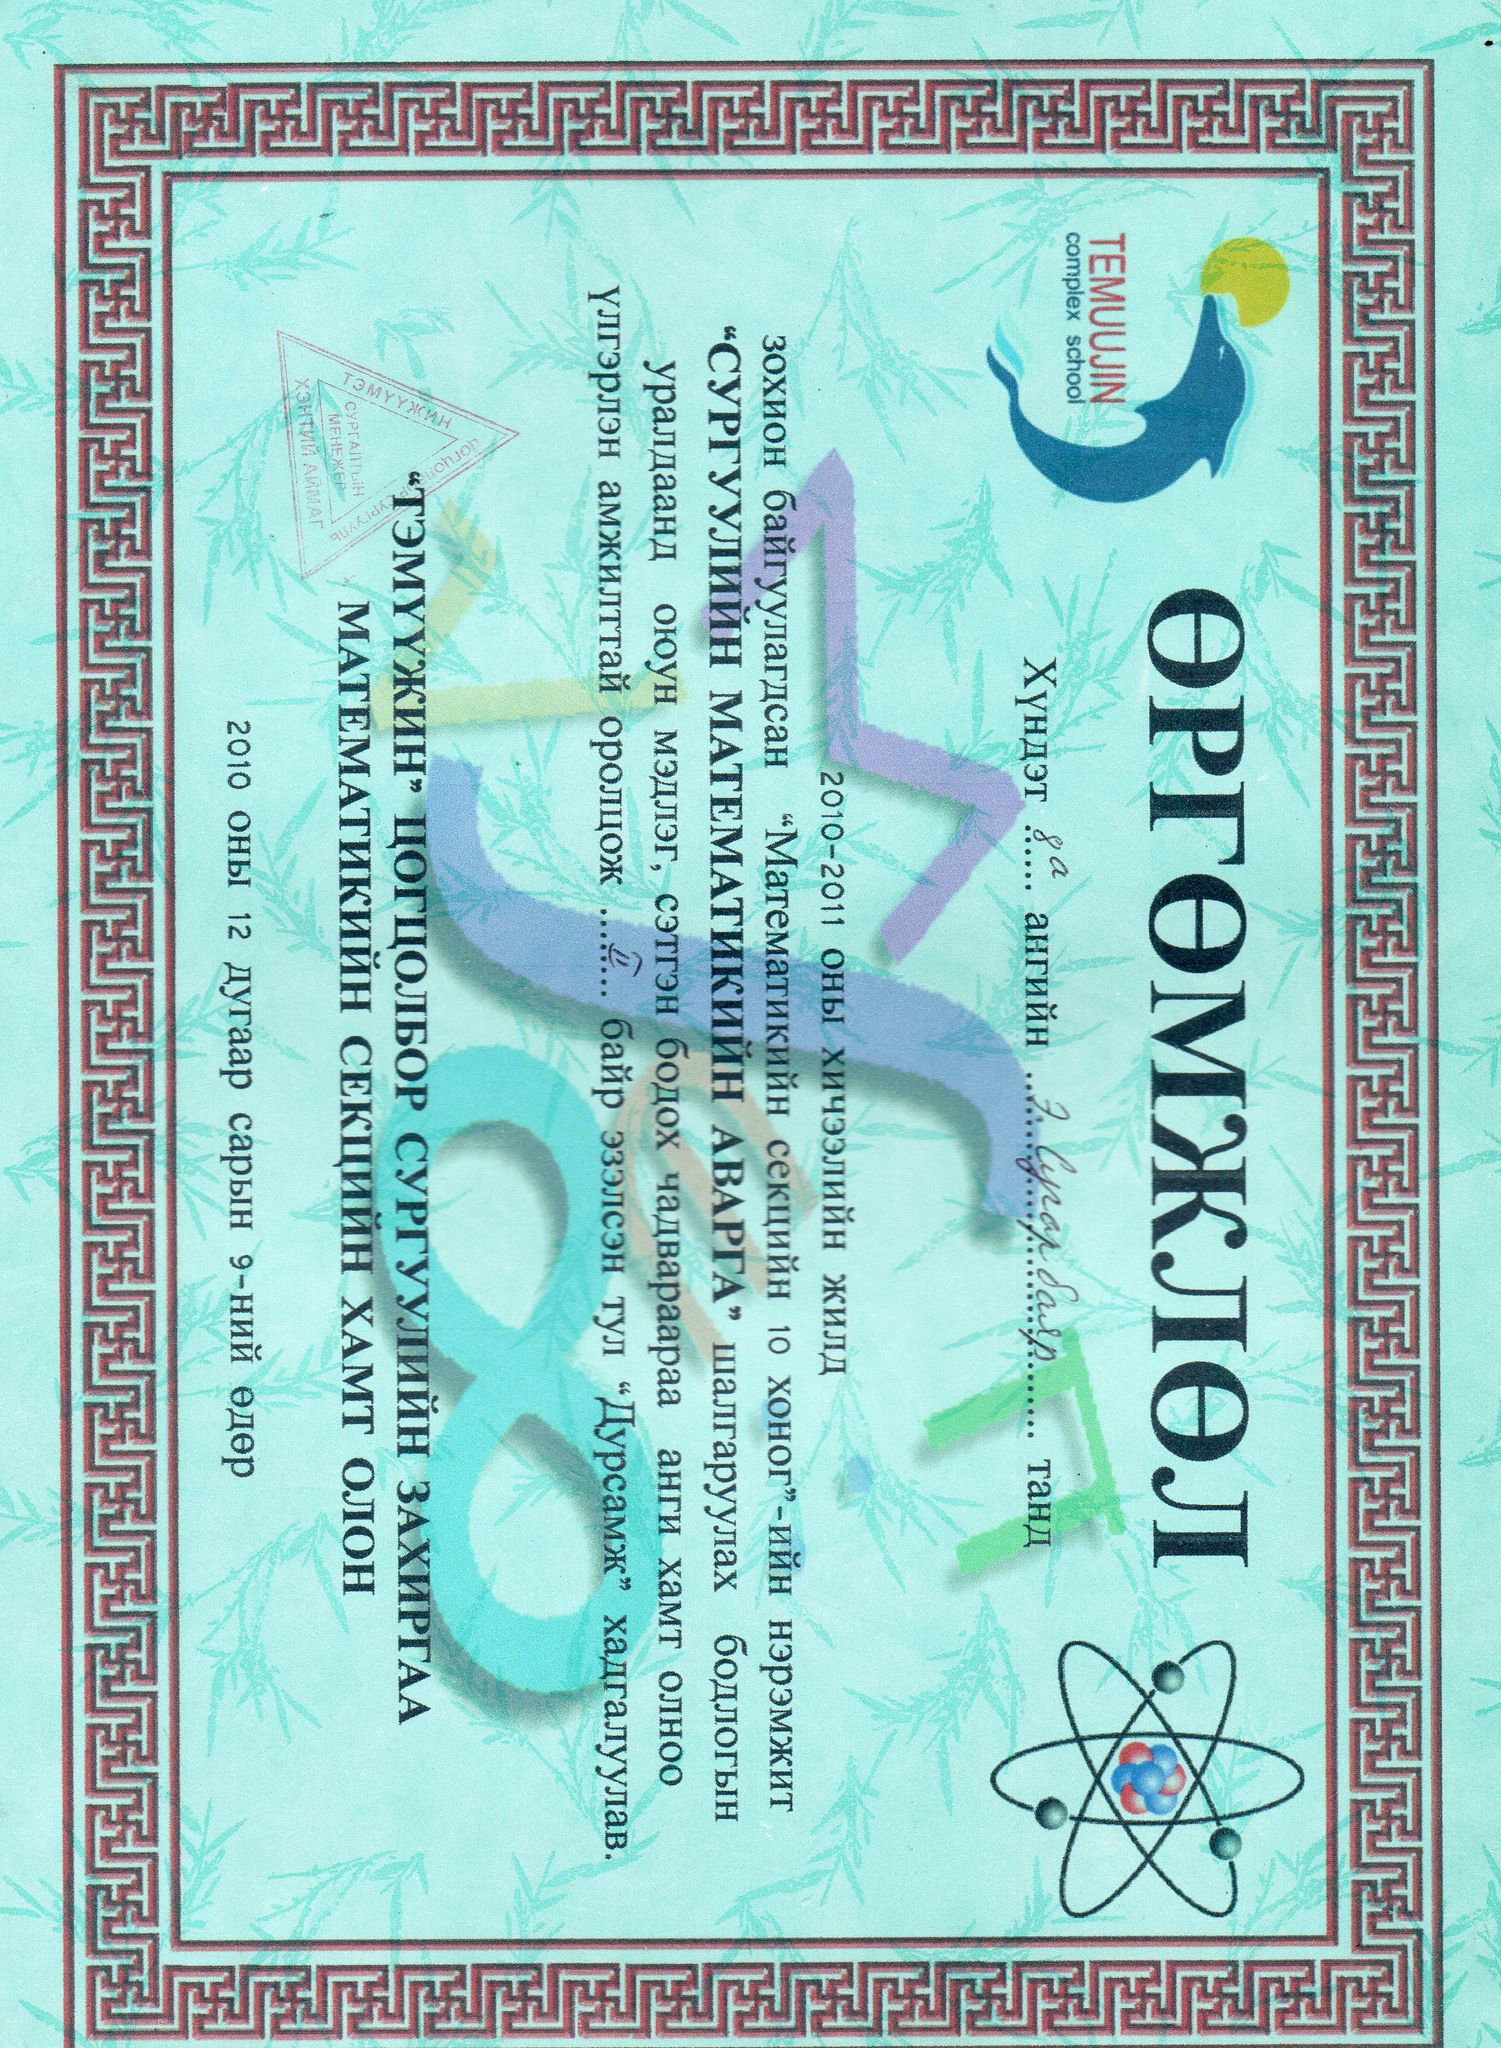 ӨРГӨМЖЛӨЛ
TEMUUJIN
complex school
Хүндэт 8а ангийн Э. Сугарбаяр танд
2010-2011 оны хичээлийн жилд
зохион байгуулагдсан “Математикийн секцийн 10 хоног”-ийн нэрэмжит
“СУРГУУЛИЙН МАТЕМАТИКИЙН АВАРГА” шалгаруулах бодлогын
уралдаанд оюун мэдлэг, сэтгэн бодох чадвараараа анги хамт олноо
үлгэрлэн амжилттай оролцож ...II... байр эзэлсэн тул “Дурсамж” хадгалуулав.
“ТЭМҮҮЖИН” ЦОГЦОЛБОР СУРГУУЛИЙН ЗАХИРГАА
МАТЕМАТИКИЙН СЕКЦИЙН ХАМТ ОЛОН
ТЭМҮҮЖИН
ЦОГЦОЛБОР СУРГУУЛЬ
СУРГАЛТЫН
МЕНЕЖЕР
ХЭНТИЙ АЙМАГ
2010 оны 12 дугаар сарын 9-ний өдөр